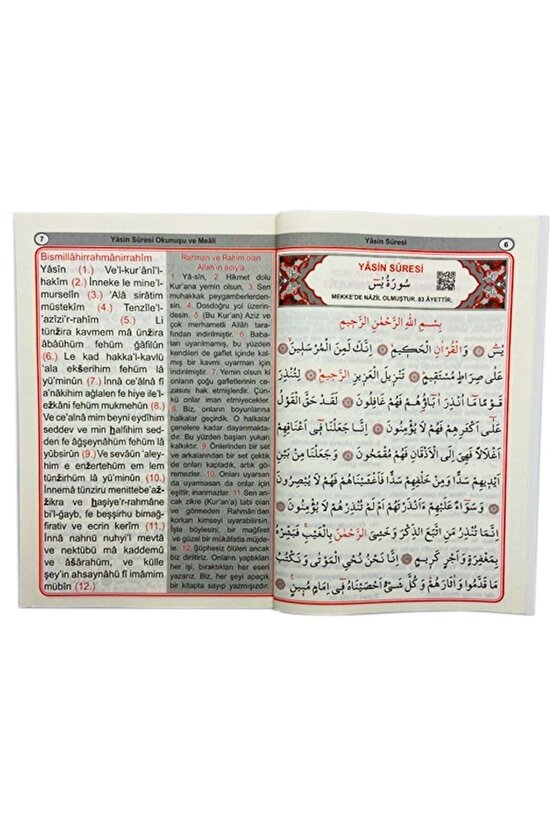 7
Yâsin Sûresi Okunuşu ve Meâli
Bismillâhirrahmânirrahîm
Yâsîn (1.) Ve'l-kur'âni'l-
hakîm (2.) İnneke le mine'l-
murselîn (3.) 'Alâ sirâtim
müstekîm (4.) Tenzîle'l-
'azîzi'r-rahîm (5.) Li
tünżira kavmem mâ ünżira
âbâühüm fehüm ğâfilûn
(6.) Le kad hakka'l-kavlü
'ala ekŝerihim fehüm lâ
yü'minûn (7.) İnna ce'alnâ fî
a'nâkihim ağlalen fe hiye ile'l-
eżkâni fehüm mukmehûn (8.)
Ve ce'alnâ mim beyni eydîhim
seddev ve min halfihim sed-
den fe âğşeynâhum fehüm lâ
yübsirûn (9.) Ve sevâün 'aley-
him e enżertehüm em lem
tünżirhüm lâ yü'minûn (10.)
İnnemâ tünziru menittebe'aż-
żikra ve haşiye'r-rahmâne
bi'l-ğayb, fe beşşirhu bimağ-
firativ ve ecrin kerîm (11.)
İnnâ nahnü nuhyi'l mevtâ
ve nektübü mâ kaddemû
ve âŝârahüm, ve külle
şey'in ahsaynâhü fî imâmim
mübîn (12.)
Rahmân ve Rahîm olan
Allah'ın adıyla
1. Yâ-sîn, 2. Hikmet dolu
Kur'ana yemin olsun, 3. Sen
muhakkak peygamberlerden-
sin. 4. Dosdoğru yol üzerin-
desin. 5. (Bu Kur'an) Aziz ve
çok merhametli Allah tara-
fından indirilmiştir. 6. Baba-
ları uyarılmamış, bu yüzden
kendileri de gaflet içinde kalmış
bir kavmi uyarman için
indirilmiştir. 7. Yemin olsun ki
onların çoğu gafletlerinin ce-
zasını hak etmişlerdir. Çün-
kü onlar iman etmiyecekler.
8. Biz, onların boyunlarına
halkalar geçirdik. O halkalar
çenelere kadar dayanmakta-
dır. Bu yüzden başları yukarı
kalkıktır. 9. Önlerinden bir set
ve arkalarından bir set çektik
de onları kapladık, artık gö-
remezler. 10. Onları uyarsan
da uyarmasan da onlar için
eşittir, inanmazlar. 11. Sen an-
cak zikre (Kur'an'a) tabi olan
ve görmeden Rahmân'dan
korkan kimseyi uyarabilirsin.
İşte böylesini, bir mağfiret
ve güzel bir mükâfatla müjde-
le. 12. Şüphesiz ölüleri ancak
biz diriltiriz. Onların yaptıkları
her işi, bıraktıkları her eseri
yazarız. Biz, her şeyi apaçık
bir kitapta sayıp yazmışızdır.
Yâsin Sûresi
6
YÂSİN SÛRESİ
سُورَةُ يٰسٓ
MEKKE'DE NÂZİL OLMUŞTUR. 83 ÂYETTİR.
بِسْمِ اللّٰهِ الرَّحْمٰنِ الرَّح۪يمِ
يٰسٓ ۞ وَالْقُرْاٰنِ الْحَك۪يمِ ۞ اِنَّكَ لَمِنَ الْمُرْسَل۪ينَ ۞
عَلٰى صِرَاطٍ مُسْتَق۪يمٍ ۞ تَنْز۪يلَ الْعَز۪يزِ الرَّح۪يمِ ۞ لِتُنْذِرَ
قَوْمًا مَٓا اُنْذِرَ اٰبَٓاؤُهُمْ فَهُمْ غَافِلُونَ ۞ لَقَدْ حَقَّ الْقَوْلُ
عَلٰٓى اَكْثَرِهِمْ فَهُمْ لَا يُؤْمِنُونَ ۞ اِنَّا جَعَلْنَا ف۪ٓى اَعْنَاقِهِمْ
اَغْلَالًا فَهِىَ اِلَى الْاَذْقَانِ فَهُمْ مُقْمَحُونَ ۞ وَجَعَلْنَا مِنْ بَيْنِ
اَيْد۪يهِمْ سَدًّا وَمِنْ خَلْفِهِمْ سَدًّا فَاَغْشَيْنَاهُمْ فَهُمْ لَا يُبْصِرُونَ
۞ وَسَوَٓاءٌ عَلَيْهِمْ ءَاَنْذَرْتَهُمْ اَمْ لَمْ تُنْذِرْهُمْ لَا يُؤْمِنُونَ ۞
اِنَّمَا تُنْذِرُ مَنِ اتَّبَعَ الذِّكْرَ وَخَشِىَ الرَّحْمٰنَ بِالْغَيْبِ فَبَشِّرْهُ
بِمَغْفِرَةٍ وَاَجْرٍ كَر۪يمٍ ۞ اِنَّا نَحْنُ نُحْيِ الْمَوْتٰى وَنَكْتُبُ
مَا قَدَّمُوا وَاٰثَارَهُمْ وَكُلَّ شَىْءٍ اَحْصَيْنَاهُ ف۪ٓى اِمَامٍ مُب۪ينٍ ۞